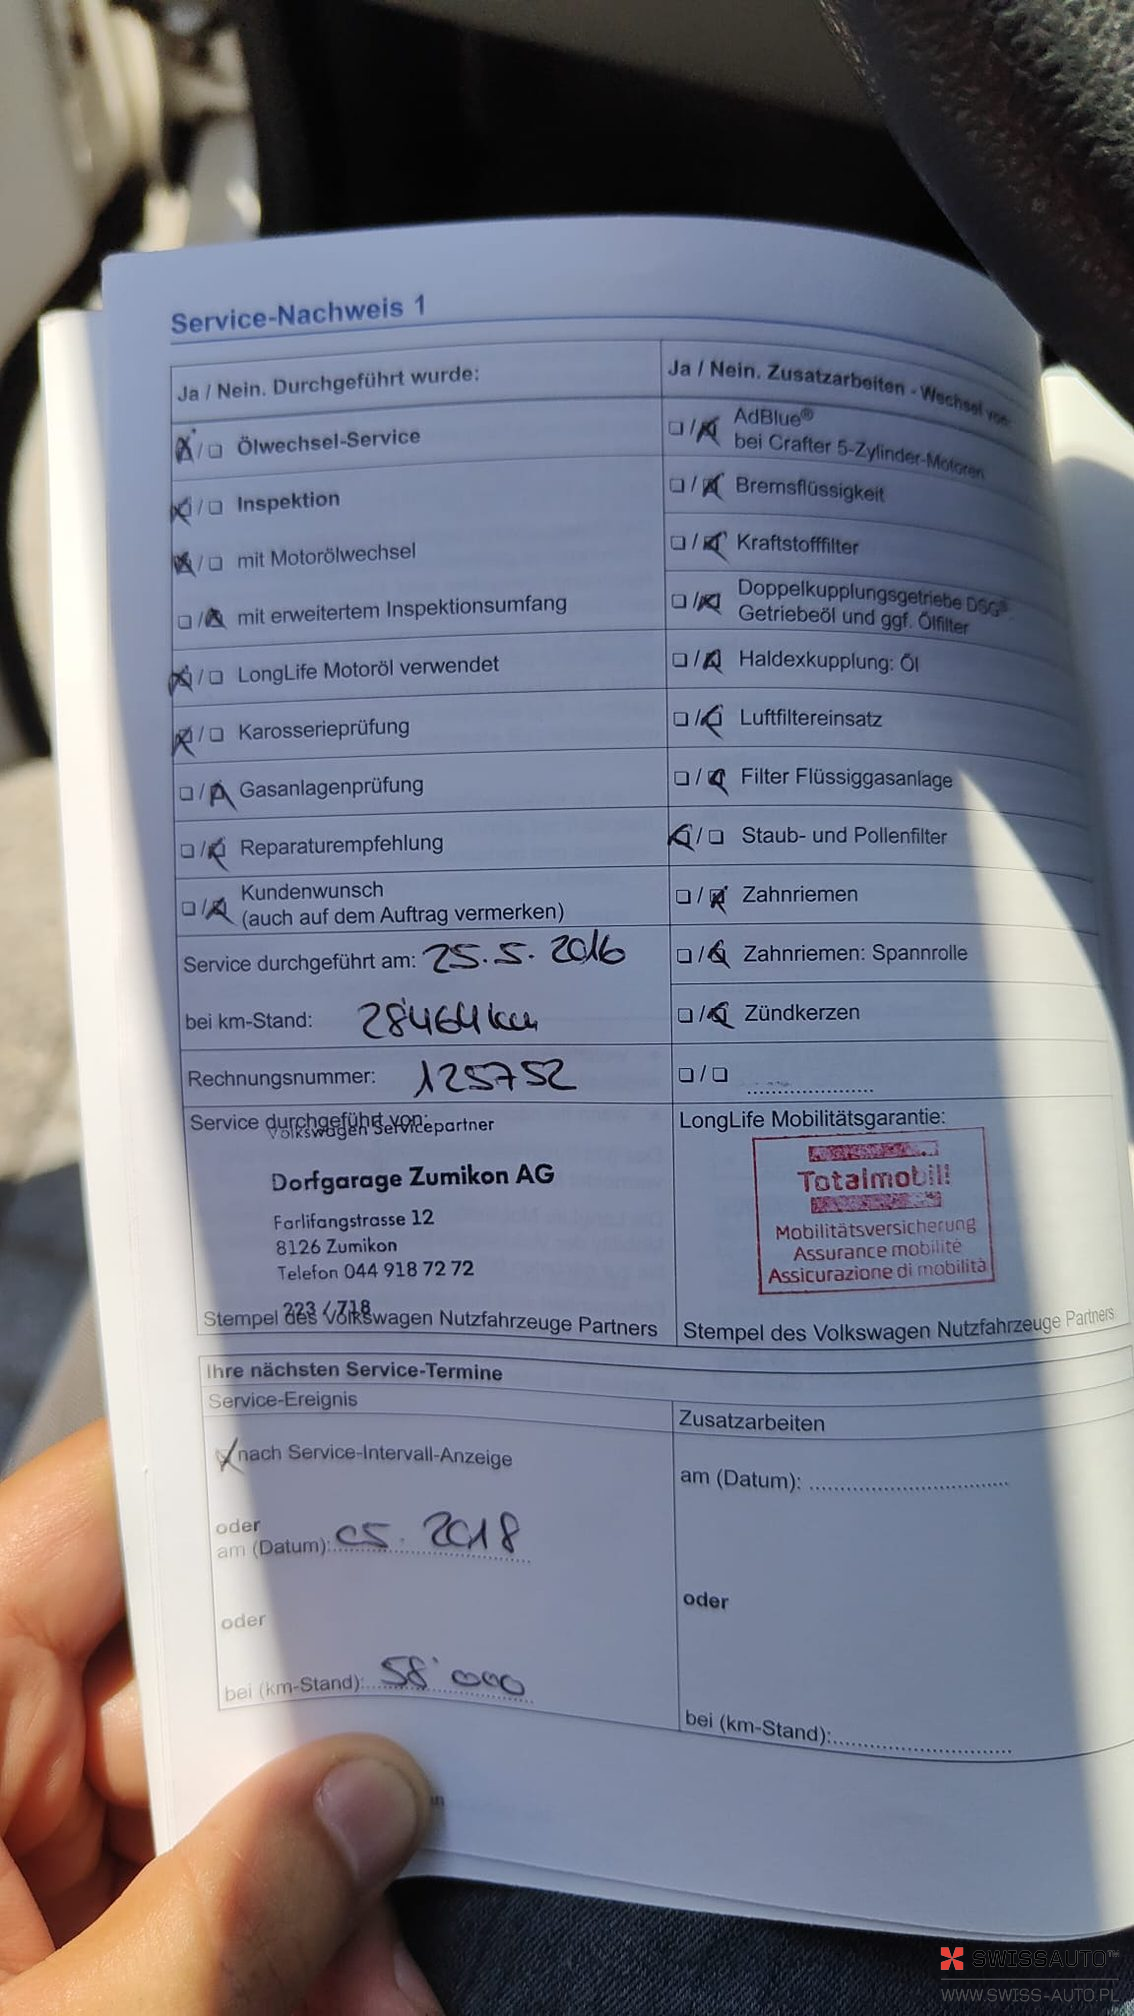 Service-Nachweis 1
Ja / Nein. Durchgeführt wurde:
Ölwechsel-Service
Inspektion
mit Motorölwechsel
mit erweitertem Inspektionsumfang
LongLife Motoröl verwendet
Karosserieprüfung
Gasanlagenprüfung
Reparaturempfehlung
Kundenwunsch
(auch auf dem Auftrag vermerken)
Service durchgeführt am: 25.5.2016
bei km-Stand: 28'464 km
Rechnungsnummer: 125752
Ja / Nein. Zusatzarbeiten - Wechsel von:
AdBlue®
bei Crafter 5-Zylinder-Motoren
Bremsflüssigkeit
Kraftstofffilter
Doppelkupplungsgetriebe DSG®
Getriebeöl und ggf. Ölfilter
Haldexkupplung: Öl
Luftfiltereinsatz
Filter Flüssiggasanlage
Staub- und Pollenfilter
Zahnriemen
Zahnriemen: Spannrolle
Zündkerzen
Service durchgeführt von:
Volkswagen Servicepartner
Dorfgarage Zumikon AG
Farlifangstrasse 12
8126 Zumikon
Telefon 044 918 72 72
223 / 718
Stempel des Volkswagen Nutzfahrzeuge Partners
LongLife Mobilitätsgarantie:
Totalmobil!
Mobilitätsversicherung
Assurance mobilité
Assicurazione di mobilità
Stempel des Volkswagen Nutzfahrzeuge Partners
Ihre nächsten Service-Termine
Service-Ereignis
nach Service-Intervall-Anzeige
oder
am (Datum): 05.2018
oder
bei (km-Stand): 58'000
Zusatzarbeiten
am (Datum):
oder
bei (km-Stand):
SWISSAUTO™
WWW.SWISS-AUTO.PL